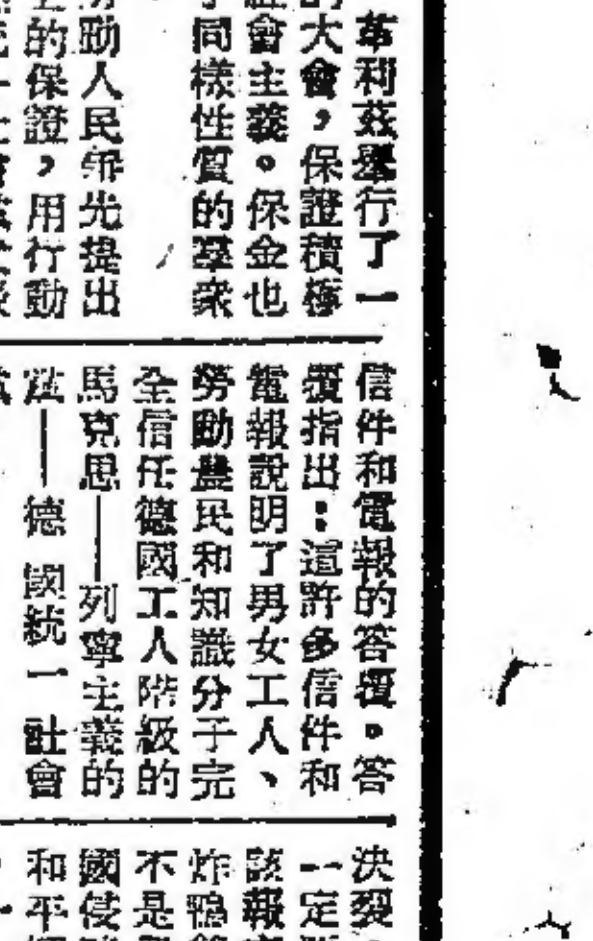 革利茲舉行了一
的大會，保證積極
會主義。保金也
同樣性質的羣衆
助人民.師光提出
的保證，用行動
信件和電報的答覆。答
覆指出：這許多信件和
電報說明了男女工人、
勞動農民和知識分子完
全信任德國工人階級的
馬克思——列寧主義的
黨——德國統一社會
決裂。
一定
該報
炸鴨
不是
國侵
和平